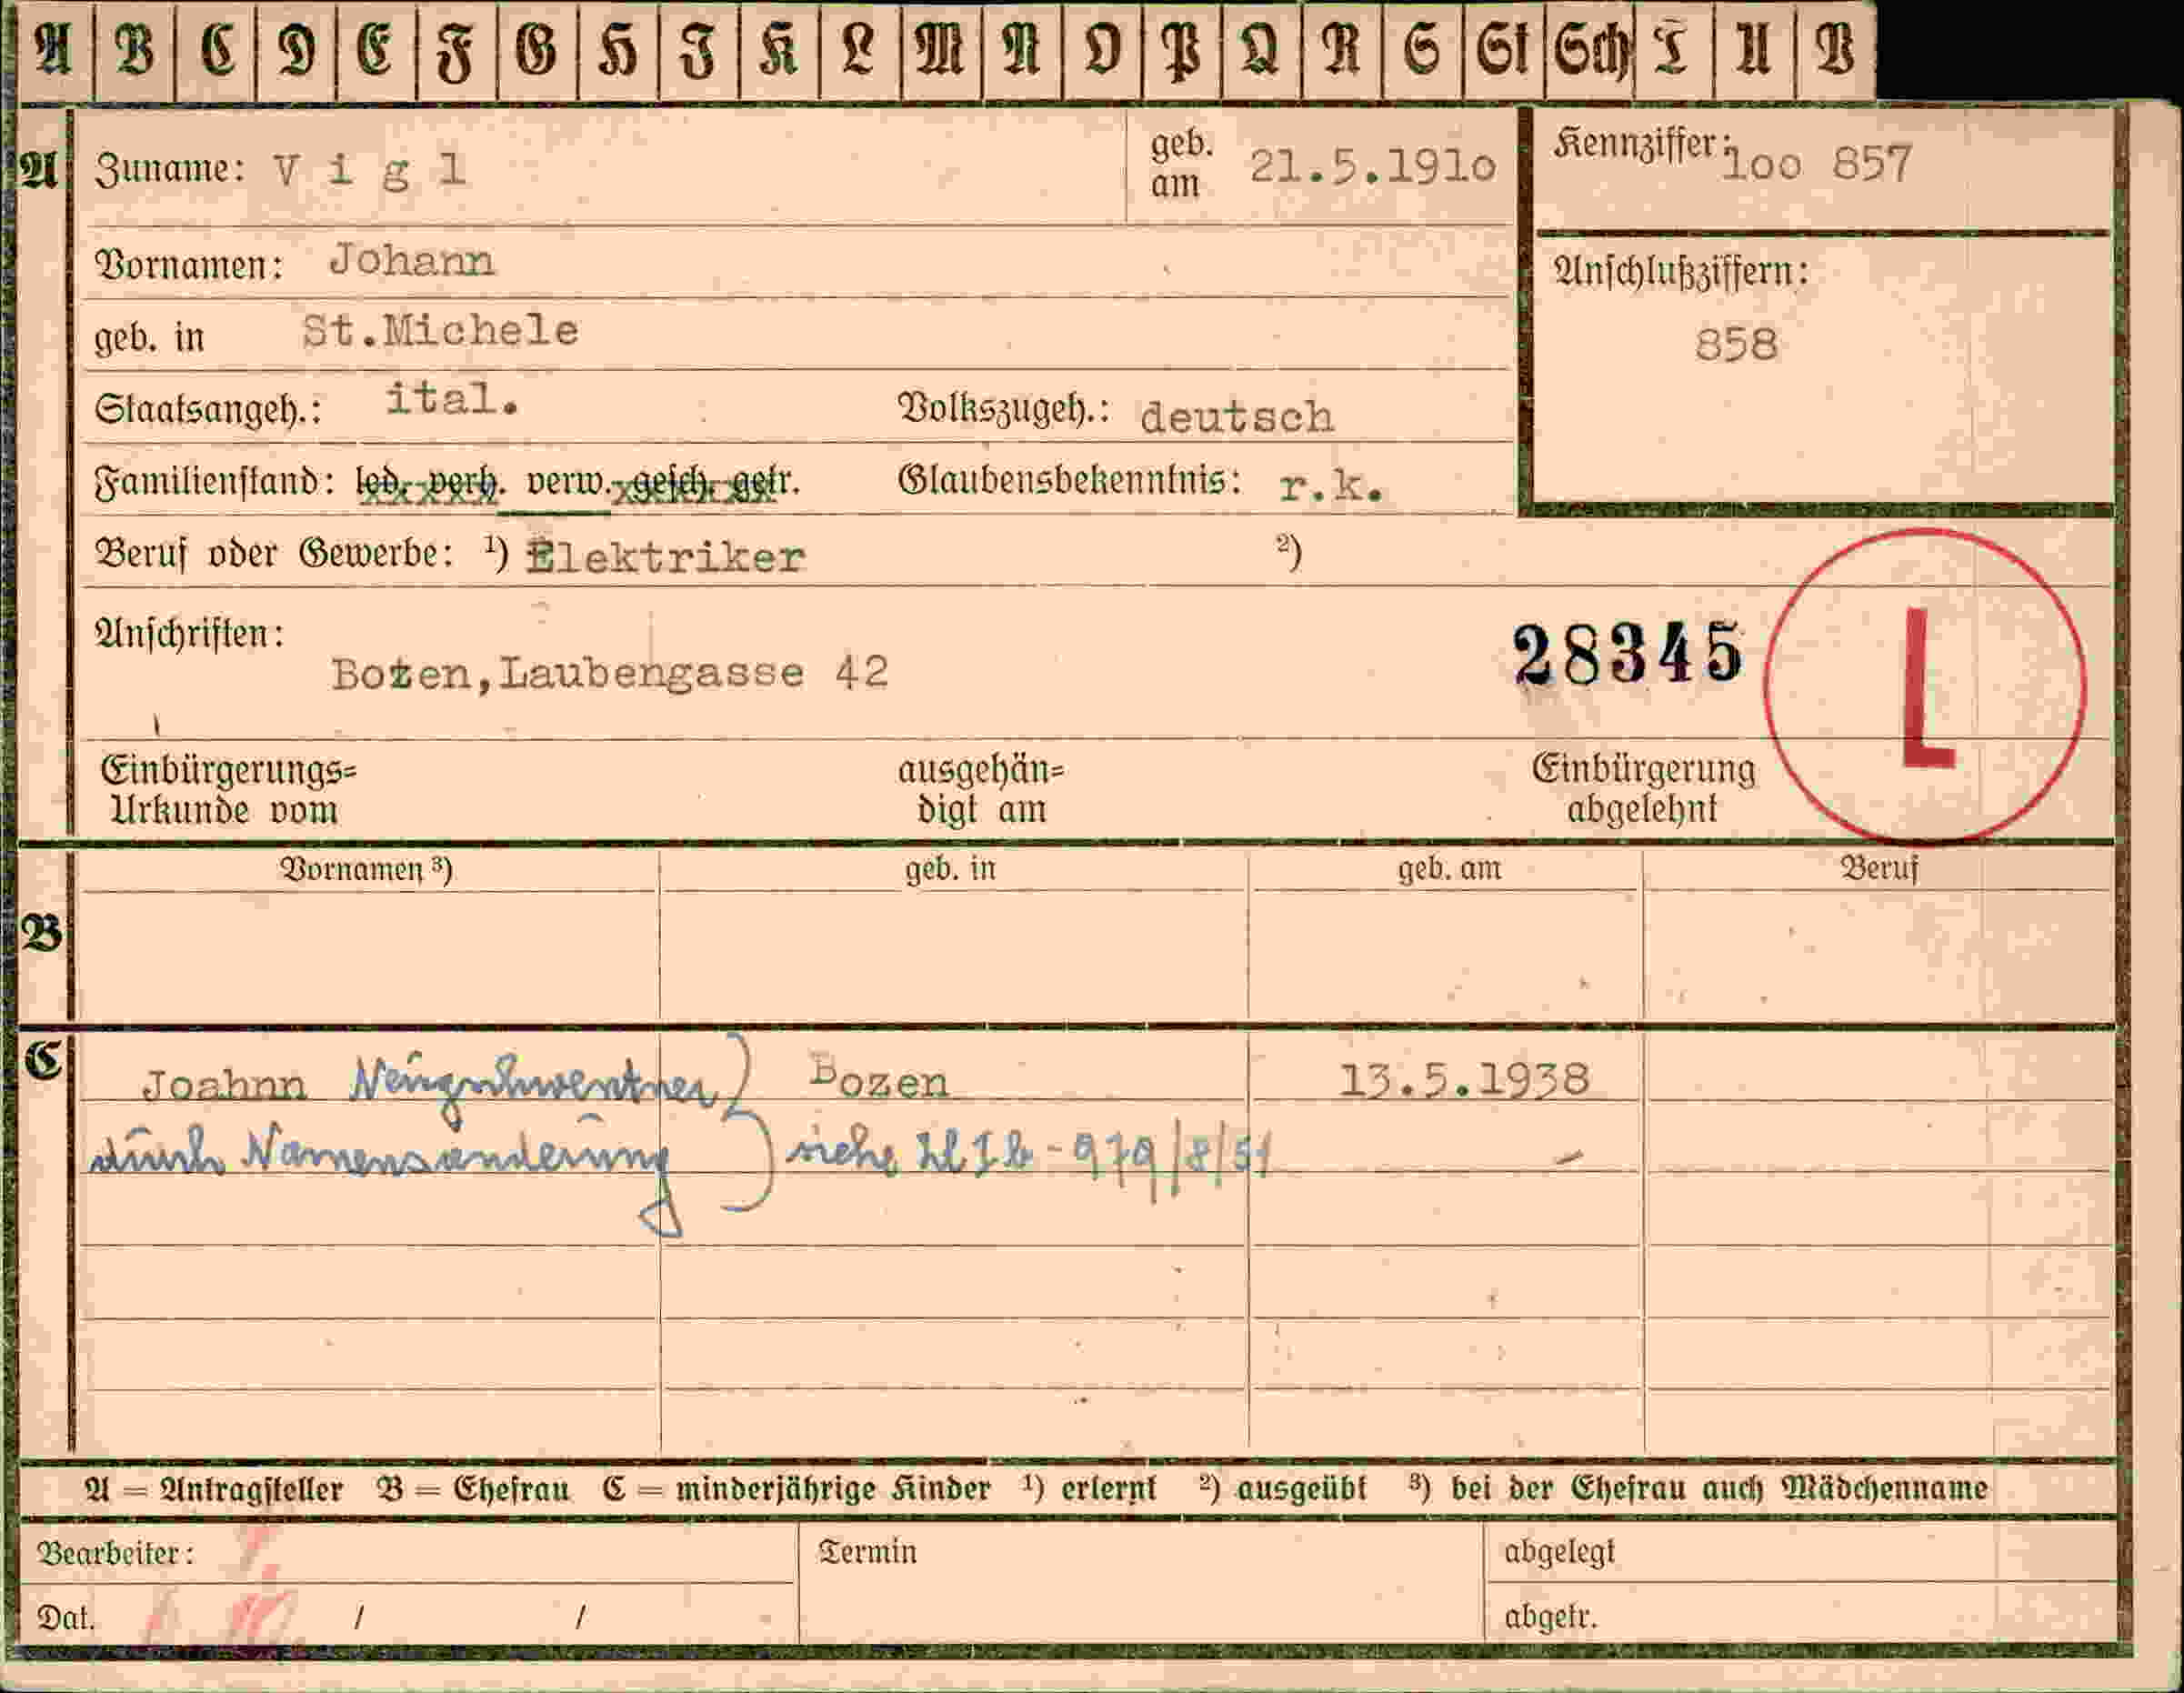 A B C D E F G H I K L M N O P Q R S St Sch T U V
A Zuname: V i g l geb. am 21.5.191o Kennziffer: 1oo 857
Vornamen: Johann
Anschlußziffern:
geb. in St.Michele
858
Staatsangeh.: ital. Volkszugeh.: deutsch
Familienstand: led. verh. verw. gesch. getr. Glaubensbekenntnis: r.k.
Beruf oder Gewerbe: ¹) Elektriker ²)
Anschriften:
Bozen, Laubengasse 42
28345 L
Einbürgerungs=
Urkunde vom
ausgehän=
digt am
Einbürgerung
abgelehnt
Vornamen ³) geb. in geb. am Beruf
B
C Joahnn Bozen 13.5.1938
durch Namensänderung ) siehe - 979/8/51
A = Antragsteller B = Ehefrau C = minderjährige Kinder ¹) erlernt ²) ausgeübt ³) bei der Ehefrau auch Mädchenname
Bearbeiter: Termin abgelegt
Dat. / / abgetr.